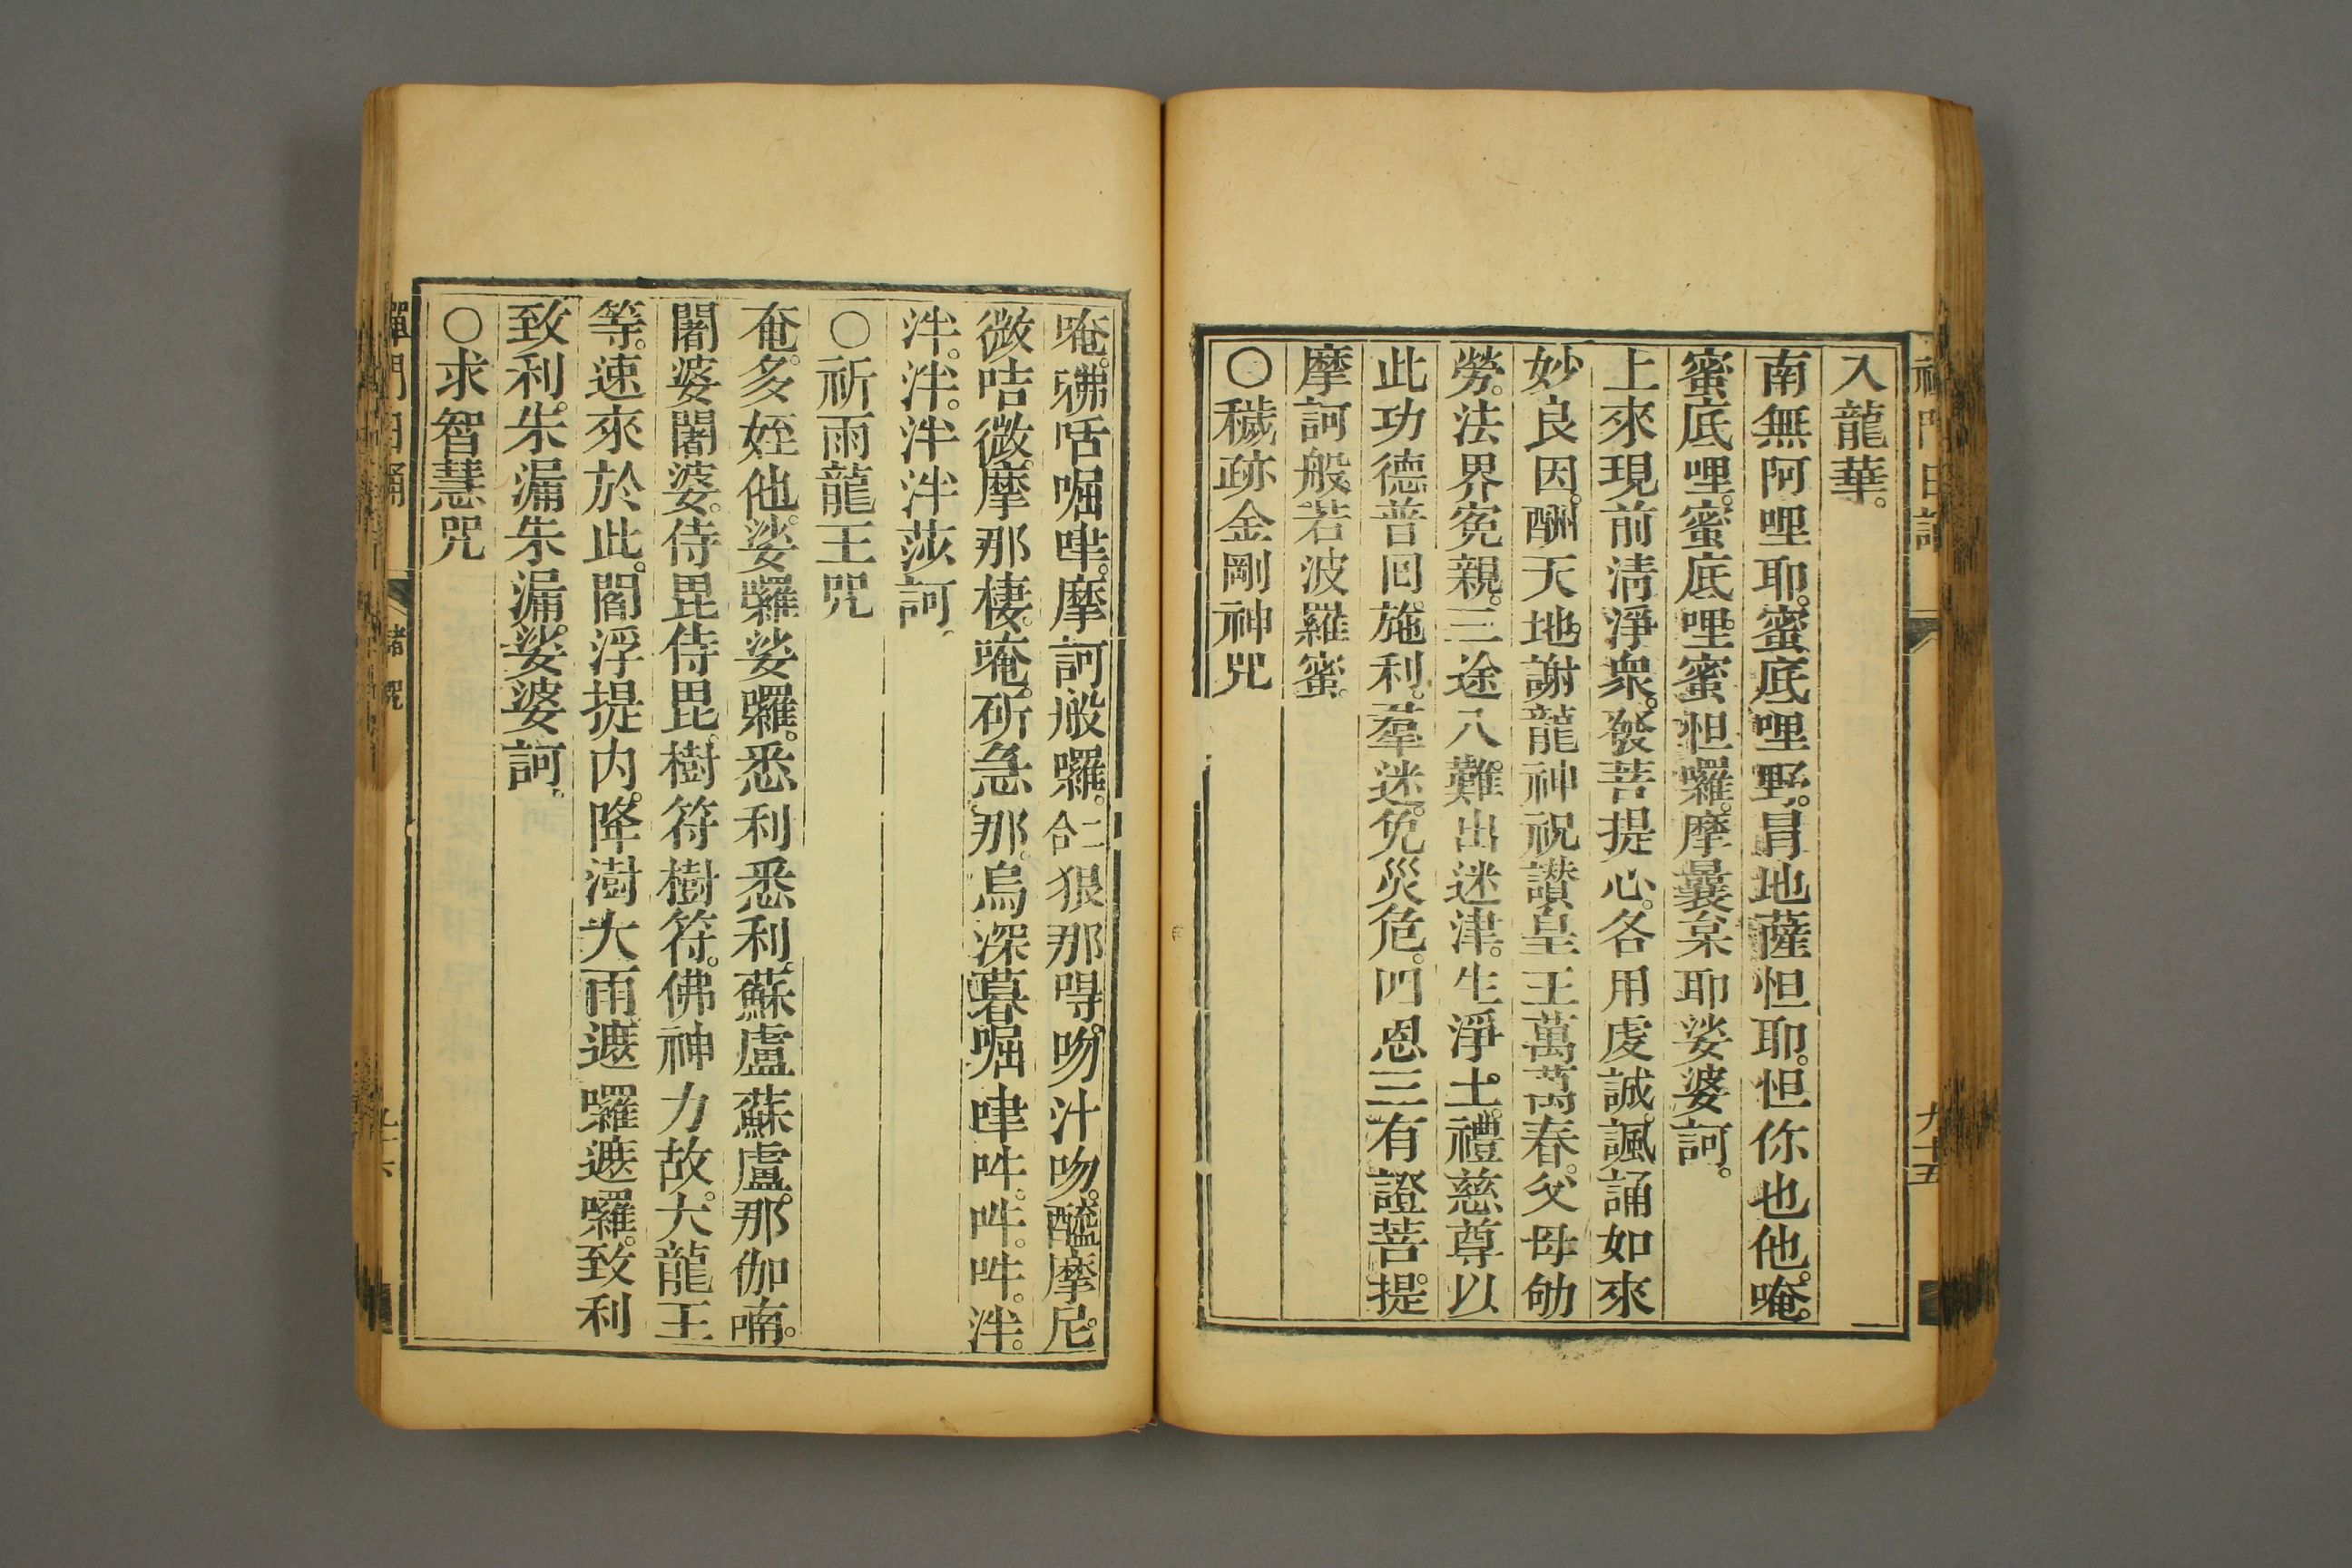 入龍華。
南無阿哩耶。蜜底哩野。冐地薩怛耶。怛你也他。唵。
蜜底哩。蜜底哩。蜜怛囉。摩曩枲耶娑婆訶。
上來現前淸淨衆。發菩提心。各用虔誠。諷誦如來
妙良因。酬天地。謝龍神。祝讃皇王萬萬春。父母劬
勞。法界寃親。三途八難出迷津。生淨土。禮慈尊以
此功德普回施利。羣迷免災危。四恩三有證菩提
摩訶般若波羅蜜。
○穢跡金剛神咒
九十五
唵。𠵽咶啒㖀。摩訶般囉。合二狠那㖊吻汁吻。醯摩尼。
微咭微。摩那棲。唵。斫急那。烏深暮啒㖀吽。吽。吽。泮。
泮。泮。泮泮莎訶。
○祈雨龍王咒
奄。多姪他。娑囉娑囉。悉利悉利。蘇盧蘇盧。那伽喃。
闍婆闍婆。侍毘侍毘。樹符樹符。佛神力故。大龍王
等。速來於此。閻浮提内。降澍大雨遮囉遮囉。致利
致利。朱漏朱漏。娑婆訶。
○求智慧咒
禪門日誦
諸咒